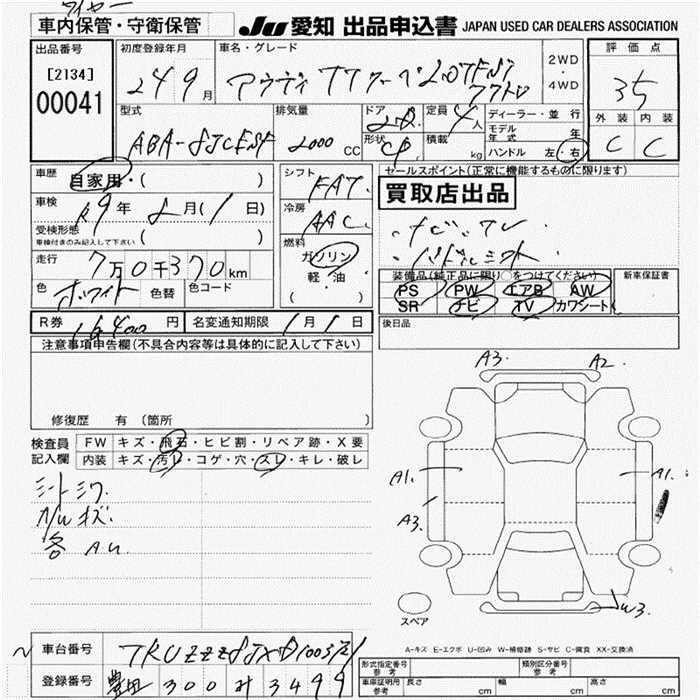 車内保管・守衛保管
JU 愛知 出品申込書 JAPAN USED CAR DEALERS ASSOCIATION
出品番号
[2134]
00041
初度登録年月
24 9月
車名・グレード
アウディ TTクーペ2.0TFSI
クワトロ
2WD
・
4WD
評価点
35
外装 内装
C C
型式
ABA-8JCESF
排気量
2000 CC
ドア
2
形状
CP
定員
4人
積載
kg
ディーラー・並行
モデル年式 年
ハンドル 左・右
車歴
自家用・( )
車検
19年8月(1日)
受検形態
車検付きのみ記入して下さい ( )
走行
7万0千370km
色
ホワイト
色替
色コード
シフト
FAT
冷房
AAC
燃料
ガソリン
軽・油
・
( )
セールスポイント(正常に機能するものに限ります)
買取店出品
・ナビ・TV
・パドルシフト
装備品(純正品に限り○をつけてください)
PS PW エアB AW
SR ナビ TV カワシート
新車保証書
後日品
R券 16,400円
名変通知期限 1月1日
注意事項申告欄(不具合内容等は具体的に記入して下さい)
修復歴 有(箇所
検査員
記入欄
FW キズ・飛石・ヒビ割・リペア跡・X要
内装 キズ・汚れ・コゲ・穴・スレ・キレ・破レ
シートシワ
A/Wキズ
各 AU
A3. A2.
A1. A1.
A3.
W3.
スペア
A-キズ E-エクボ U-凹み W-補修跡 S-サビ C-腐食 XX-交換済
車台番号
登録番号 豊田 300 3499
形式指定番号
参考
類別区分番号
参考
車庫証明用
参考
長さ cm
幅 cm
高さ cm